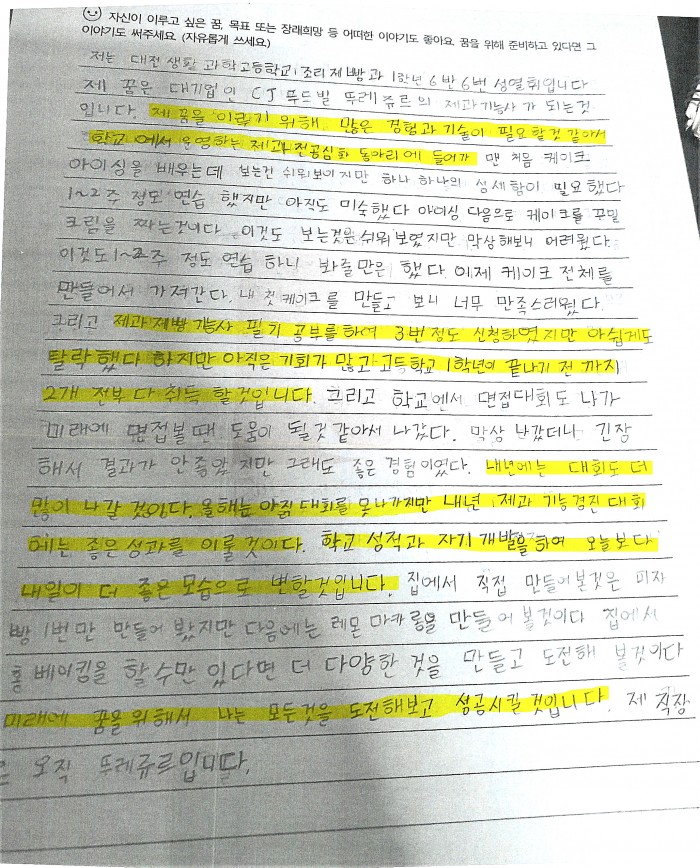 자신이 이루고 싶은 꿈, 목표 또는 장래희망 등 어떠한 이야기도 좋아요. 꿈을 위해 준비하고 있다면 그
이야기도 써주세요. (자유롭게 쓰세요.)
저는 대전 생활 과학고등학교 조리제빵과 1학년 6반 6번 성열휘입니다
제 꿈은 대기업인 CJ 푸드빌 뚜레쥬르의 제과기능사가 되는것
입니다. 제 꿈을 이루기 위해, 많은 경험과 기술이 필요할것 같아서
학교에서 운영하는 제과전공심화 동아리에 들어가 맨 처음 케이크
아이싱을 배우는데 보는건 쉬워보이지만 하나 하나의 섬세함이 필요했다
1~2주 정도 연습 했지만 아직도 미숙했다 아이싱 다음으로 케이크를 꾸밀
크림을 짜는것이다 이것도 보는것은 쉬워 보였지만 막상해보니 어려웠다
이것도 1~2주 정도 연습 하니 봐줄만은 했다. 이제 케이크 전체를
만들어서 가져간다. 내 첫 케이크를 만들고 보니 너무 만족스러웠다.
그리고 제과제빵기능사 필기 공부를하여 3번정도 신청하였지만 아쉽게도
탈락했다 하지만 아직은 기회가 많고 고등학교 1학년이 끝나기 전 까지
2개 전부 다 취득 할것입니다. 그리고 학교에서 면접대회도 나가
미래에 면접볼 땐 도움이 될것 같아서 나갔다. 막상 나갔더니 긴장
해서 결과가 안좋았지만 그래도 좋은 경험이었다. 내년에는 대회도 더
많이 나갈 것이다. 올해는 아직 대회를 못나가지만 내년, 제과 기능경진 대회
에는 좋은성과를 이룰것이다. 학교 성적과 자기 개발을하여 오늘보다
내일이 더 좋은 모습으로 변할것입니다. 집에서 직접 만들어본것은 피자
빵 1번만 만들어 봤지만 다음에는 레몬 마카롱을 만들어 볼것이다 집에서
홈 베이킹을 할 수만 있다면 더 다양한 것을 만들고 도전해 볼것이다
미래에 꿈을 위해서 나는 모든것을 도전해보고 성공시킬 것입니다. 제 직장
은 오직 뚜레쥬르입니다.